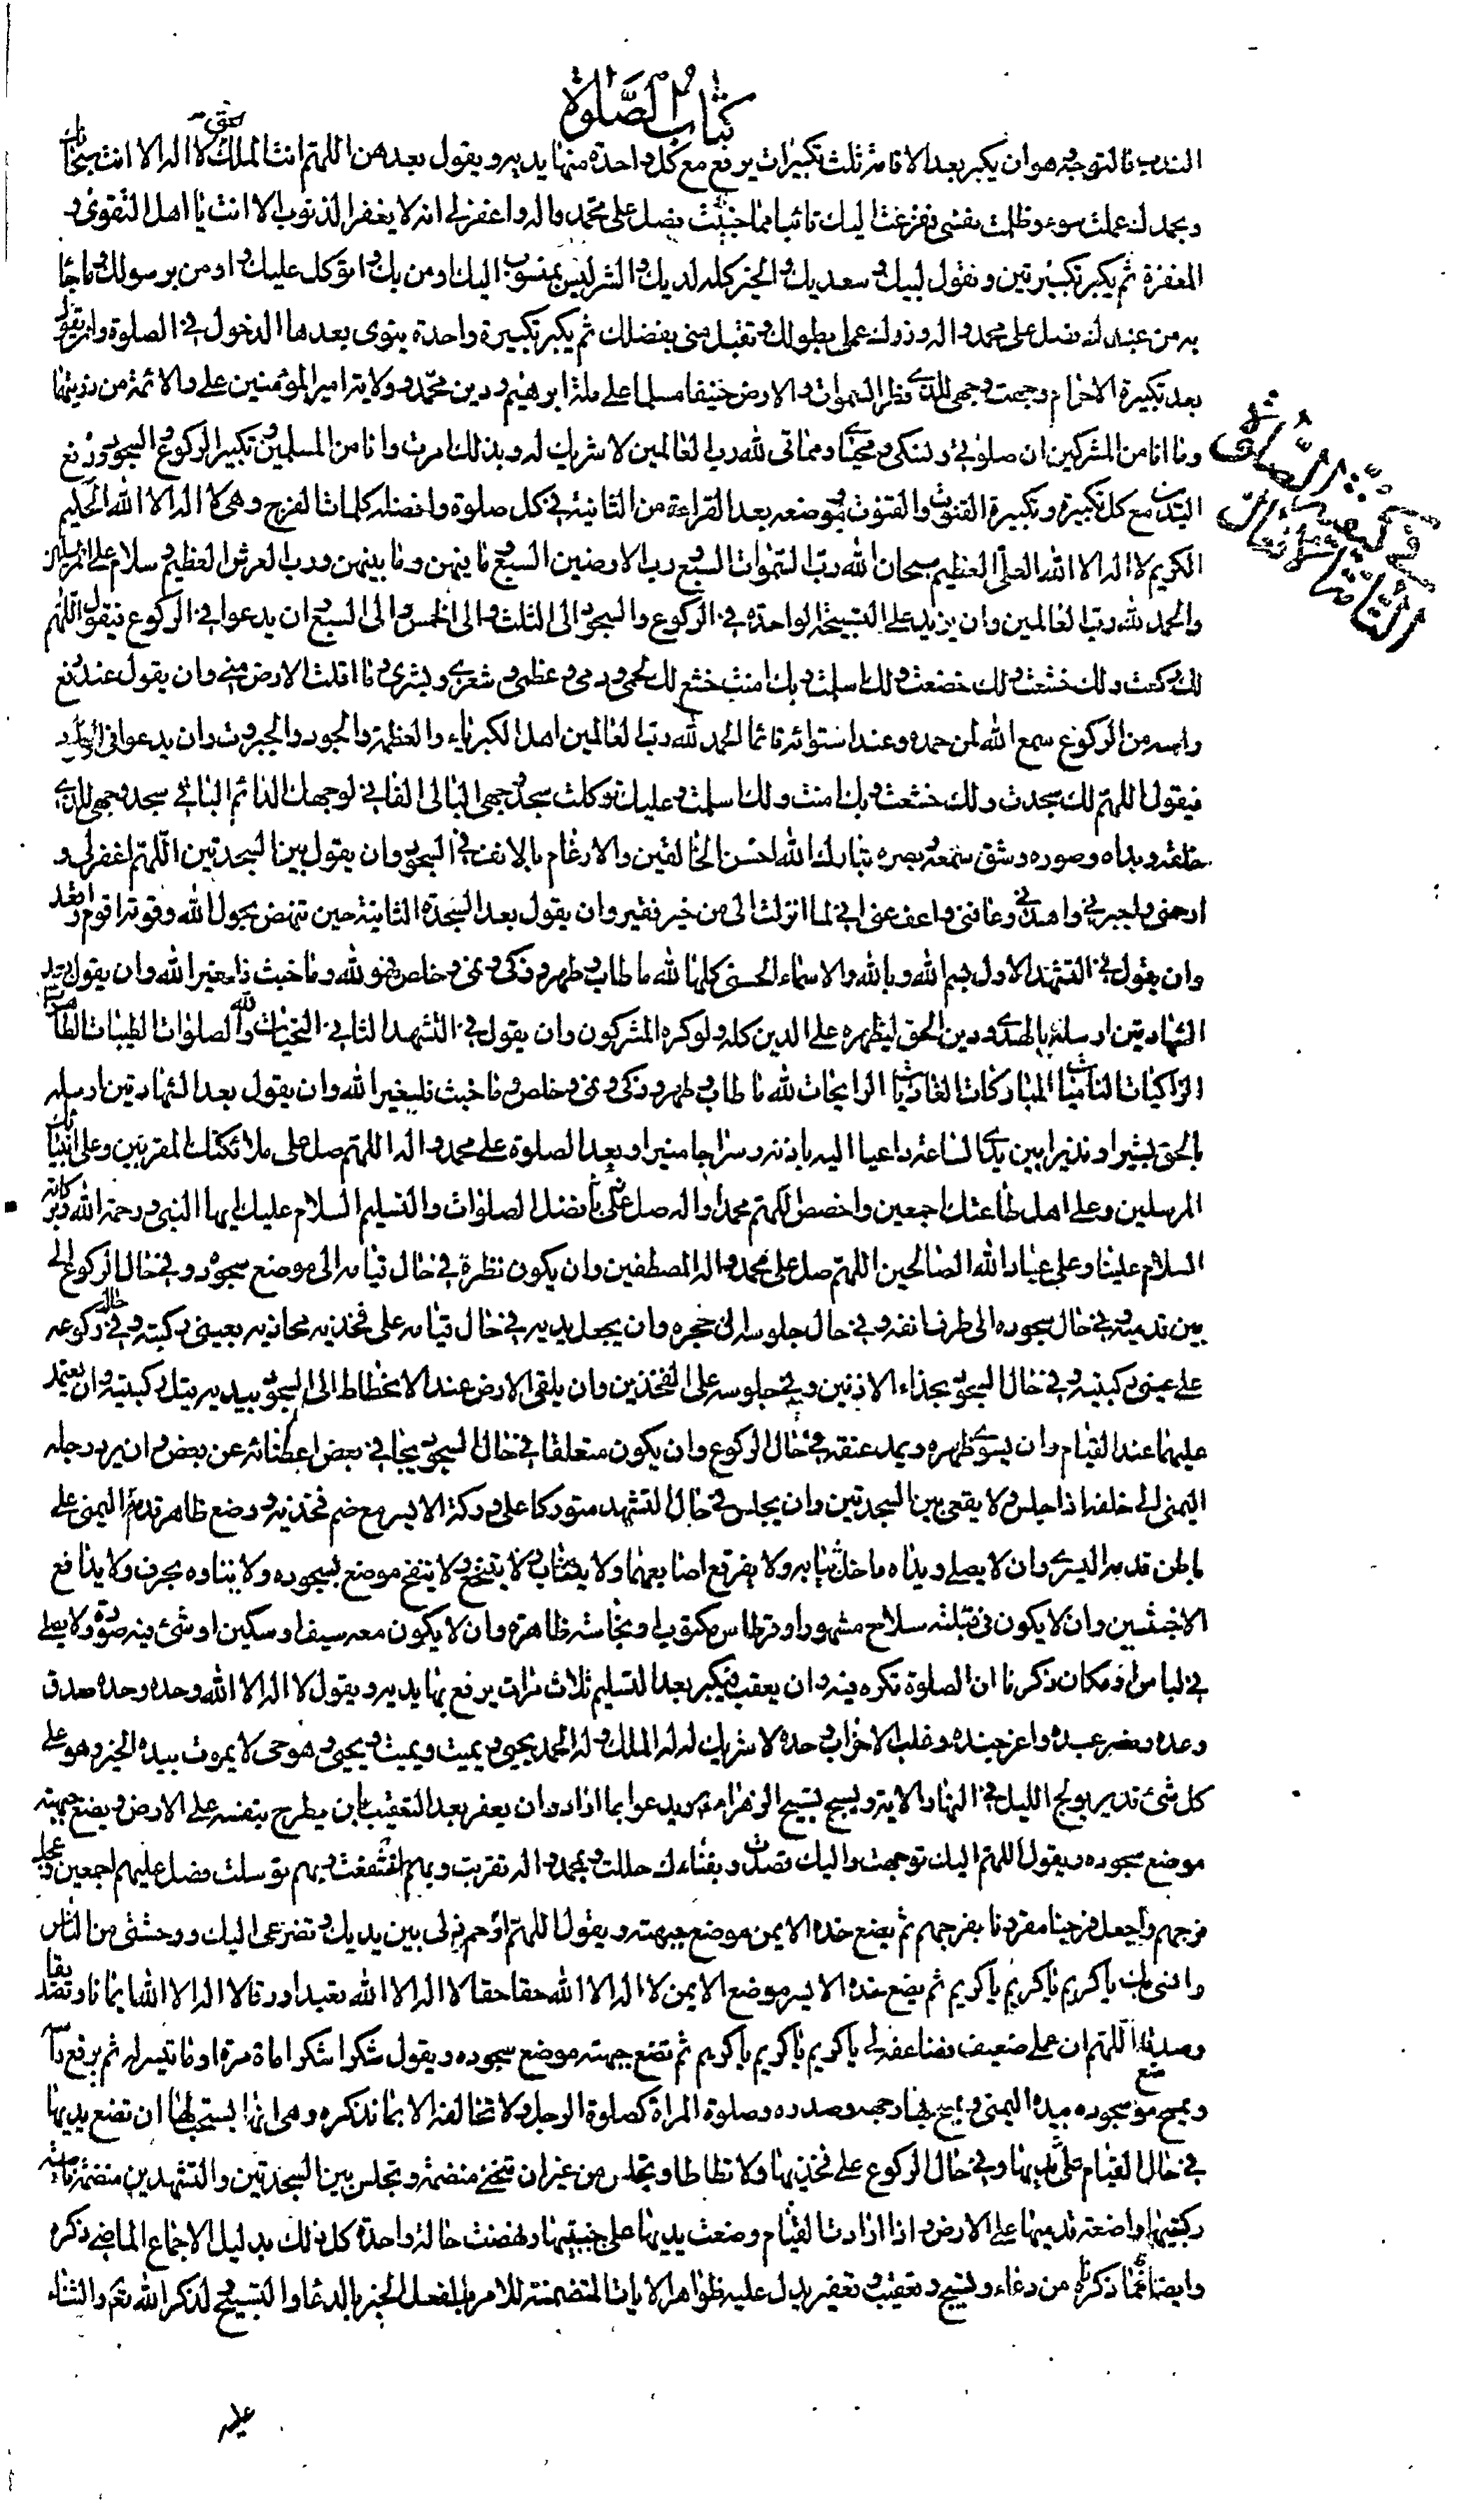 كتاب الصلوة
الندب فالتوجه هو ان يكبر بعد الاقامة ثلث تكبيرات يرفع مع كل واحدة منها يديه ويقول بعدهن اللهم انت الملك الحق لا اله الا انت سبحانك
وبحمدك عملت سوء وظلمت نفسى ففزعت اليك تائبا مما جنيت فصل على محمد واله واغفر لى انه لا يغفر الذنوب الا انت يا اهل التقوى و
المغفرة ثم يكبر تكبيرتين ويقول لبيك وسعديك والخير كله لديك والشر ليس بمنسوب اليك اومن بك واتوكل عليك واومن برسولك وما جاء
به من عندك فصل على محمد واله وزك عملى بطولك وتقبل منى بفضلك ثم يكبر تكبيرة واحدة ينوى بعدها الدخول فى الصلوة وان يقول
بعد تكبيرة الاحرام وجهت وجهى للذى فطر السموات والارض حنيفا مسلما على ملة ابرهيم ودين محمد وولاية امير المؤمنين على والائمة من ذريتهما
وما انا من المشركين ان صلوتى ونسكى ومحياى ومماتى لله رب العالمين لا شريك له وبذلك امرت وانا من المسلمين وتكبير الركوع والسجود ورفع
اليدين مع كل تكبيرة وتكبيرة القنوت والقنوت وموضعه بعد القراءة من الثانية فى كل صلوة وافضله كلمات الفرج وهى لا اله الا الله الحليم
الكريم لا اله الا الله العلى العظيم سبحان الله رب السموات السبع ورب الارضين السبع وما فيهن وما بينهن ورب العرش العظيم وسلام على المرسلين
والحمد لله رب العالمين وان يزيد على التسبيحة الواحدة فى الركوع والسجود الى الثلث والى الخمس والى السبع وان يدعوا فى الركوع فيقول اللهم
لك ركعت ولك خشعت ولك خضعت ولك اسلمت وبك امنت خشع لك لحمى ودمى وعظمى وشعرى وبشرى وما اقلت الارض منى وان يقول عند رفع
راسه من الركوع سمع الله لمن حمده وعند استوائه قائما الحمد لله رب العالمين اهل الكبرياء والعظمة والجود والجبروت وان يدعوا فى السجود
فيقول اللهم لك سجدت ولك خشعت وبك امنت ولك اسلمت وعليك توكلت سجد وجهى البالى الفانى لوجهك الدائم الباقى سجد وجهى للذى
خلقه وبداه وصوره وشق سمعه وبصره تبارك الله احسن الخالقين والارغام بالانف فى السجود وان يقول بين السجدتين اللهم اغفر لى و
ارحمنى واجبرنى واهدنى وعافنى واعف عنى انى لما انزلت الى من خير فقير وان يقول بعد السجدة الثانية حين تنهض بحول الله وقوته اقوم واقعد
وان يقول فى التشهد الاول بسم الله وبالله والاسماء الحسنى كلها لله ما طاب وطهر وزكى ونمى وخلص فهو لله وما خبث فلغير الله وان يقول بعد
الشهادتين ارسله بالهدى ودين الحق ليظهره على الدين كله ولو كره المشركون وان يقول فى التشهد الثانى التحيات لله والصلوات الطيبات الطاهرات
الزاكيات الناميات المباركات الغاديات الرايحات لله ما طاب وطهر وزكى ونمى وخلص وما خبث فلغير الله وان يقول بعد الشهادتين ارسله
بالحق بشيرا ونذيرا بين يدى الساعة وداعيا اليه باذنه وسراجا منيرا وبعد الصلوة على محمد واله اللهم صل على ملائكتك المقربين وعلى انبيائك
المرسلين وعلى اهل طاعتك اجمعين واخصص اللهم محمدا واله بافضل الصلوات والتسليم السلام عليك ايها النبى ورحمة الله وبركاته
السلام علينا وعلى عباد الله الصالحين اللهم صل على محمد واله المصطفين وان يكون نظره فى حال قيامه الى موضع سجوده وفى حال الركوع الى
بين قدميه وفى حال سجوده الى طرف انفه وفى حال جلوسه الى حجره وان يجعل يديه فى حال قيامه على فخذيه محاذيه بعينى ركبتيه وفى حال ركوعه
على عينى ركبتيه وفى حال السجود بحذاء الاذنين وفى جلوسه على الفخذين وان يلقى الارض عند الانحطاط الى السجود بيديه قبل ركبتيه وان يعتمد
عليهما عند القيام وان يسوى ظهره ويمد عنقه فى حال الركوع وان يكون متعلقا فى حال السجود يجافى بعض اعضائه عن بعض وان يرد رجله
اليمنى الى خلفه اذا جلس ولا يقعى بين السجدتين وان يجلس فى حال التشهد متوركا على وركه الايسر مع ضم فخذيه ووضع ظاهر قدمه اليمنى على
باطن قدمه اليسرى وان لا يصلى ويداه داخل ثيابه ولا يفرقع اصابعهما ولا يتثاب ولا يتنخع ولا ينفخ موضع سجوده ولا يتاوه بحرف ولا يدافع
الاخبثين وان لا يكون فى قبلته سلاح مشهور او قرطاس مكتوب او نجاسة ظاهرة وان لا يكون معه سيف او سكين او شئ فيه صورة ولا يصلى
فى لباس او مكان ذكرنا ان الصلوة تكره فيه وان يعقب فيكبر بعد التسليم ثلاث مرات يرفع بها يديه ويقول لا اله الا الله وحده وحده صدق
وعده ونصر عبده واعز جنده وغلب الاحزاب وحده لا شريك له له الملك وله الحمد يحيى ويميت ويميت ويحيى وهو حى لا يموت بيده الخير وهو على
كل شئ قدير يولج الليل فى النهار الاية ويسبح تسبيح الزهراء ويدعوا بما اراد وان يعفر بعد التعقيب بان يطرح بنفسه على الارض ويضع جبهته
موضع سجوده ويقول اللهم اليك توجهت واليك قصدت وبفناءك حللت وبمحمد واله تقربت وبهم استشفعت وبهم توسلت فصل عليهم اجمعين وعجل
فرجهم واجعل فرجنا مقرونا بفرجهم ثم يضع خده الايمن موضع جبهته ويقول اللهم ارحم ذلى بين يديك وتضرعى اليك ووحشتى من الناس
وانسى بك يا كريم يا كريم يا كريم ثم يضع خده الايسر موضع الايمن لا اله الا الله حقا حقا لا اله الا الله تعبدا ورقا لا اله الا الله ايمانا وتصديقا
وصدقا اللهم ان عملى ضعيف فضاعفه لى يا كريم يا كريم يا كريم ثم تضع جبهته موضع سجوده ويقول شكرا شكرا ماة مرة او ما تيسر له ثم يرفع راسه
ويمسح موضع سجوده بيده اليمنى ويمسح بها وجهه وصدره وصلوة المراة كصلوة الرجل ولا تخالفه الا بما نذكره وهى انها يستحب لها ان تضع يديها
فى حال القيام على ثدييها وفى حال الركوع على فخذيها ولا تطاطا وتجلس من غير ان تنحنى منضمة وتجلس بين السجدتين والتشهدين منضمة ناصبة
ركبتيها واضعة قدميها على الارض واذا ارادت القيام وضعت يديها على جنبيها ونهضت حالة واحدة كل ذلك بدليل الاجماع الماضى ذكره
وايضا فما ذكرناه من دعاء وتسبيح وتعقيب وتعفير يدل عليه ظواهر الايات المتضمنة للامر بالفعل الخير والدعا والتسبيح لذكر الله تعالى والثناء
عليه